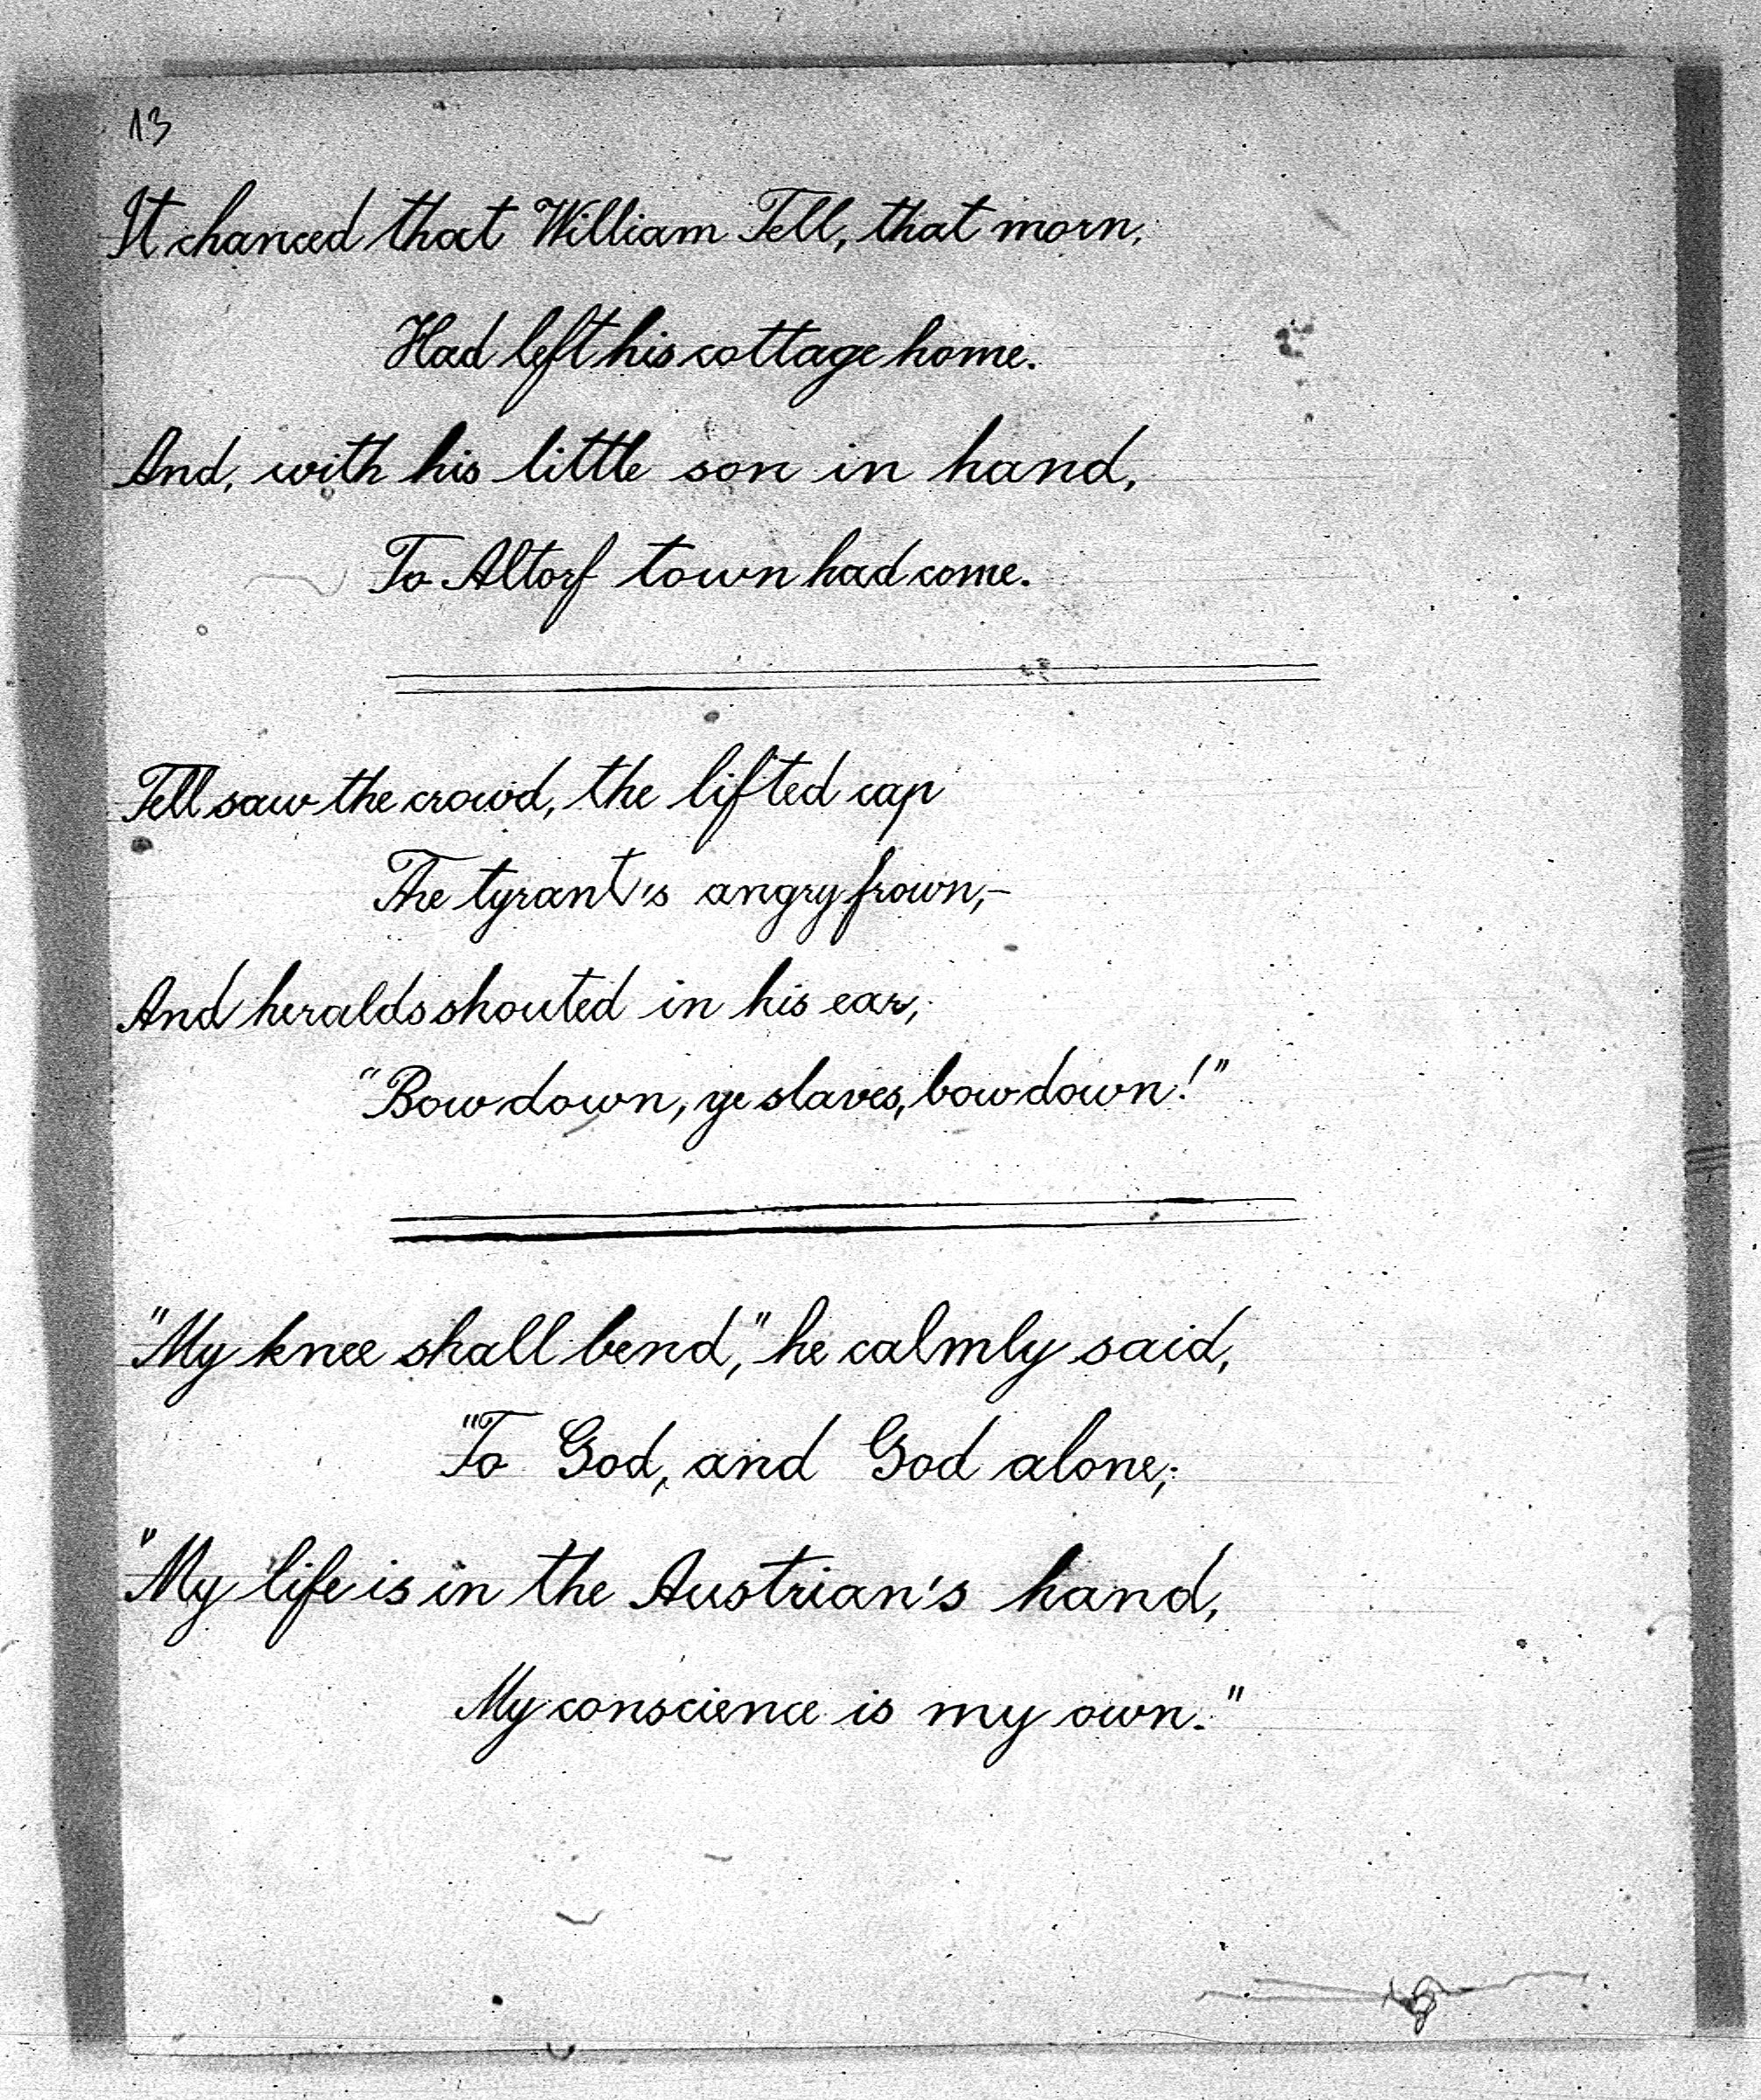 13
It chanced that William Tell, that morn,
Had left his cottage home.
And, with his little son in hand,
To Altorf town had come.
Tell saw the crowd, the lifted cap
The tyrant's angry frown,—
And heralds shouted in his ear,
"Bow down, ye slaves, bow down!"
"My knee shall bend," he calmly said,
"To God, and God alone;
"My life is in the Austrian's hand,
My conscience is my own."